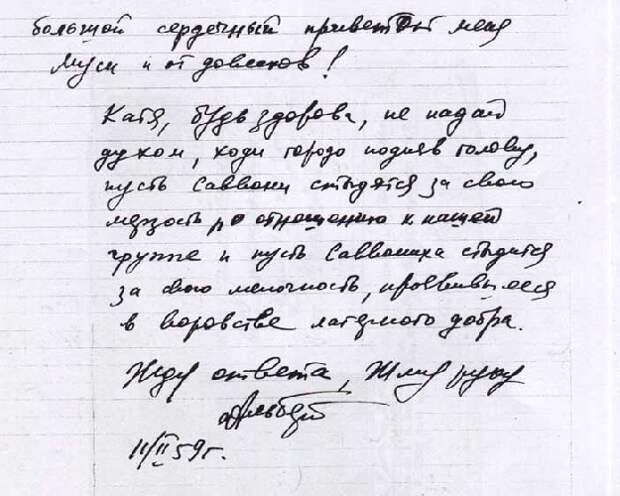 большой сердечный привет от меня
Муси и от довесков!
Катя, будь здорова, не падай
духом, ходи гордо подняв голову,
пусть Саввони стыдятся за свою
мерзость по отношению к нашей
группе и пусть Саввониха стыдится
за свою мелочность, проявившуюся
в воровстве лагерного добра.
Жду ответа, Жму руку
Альберт
11/II 59г.